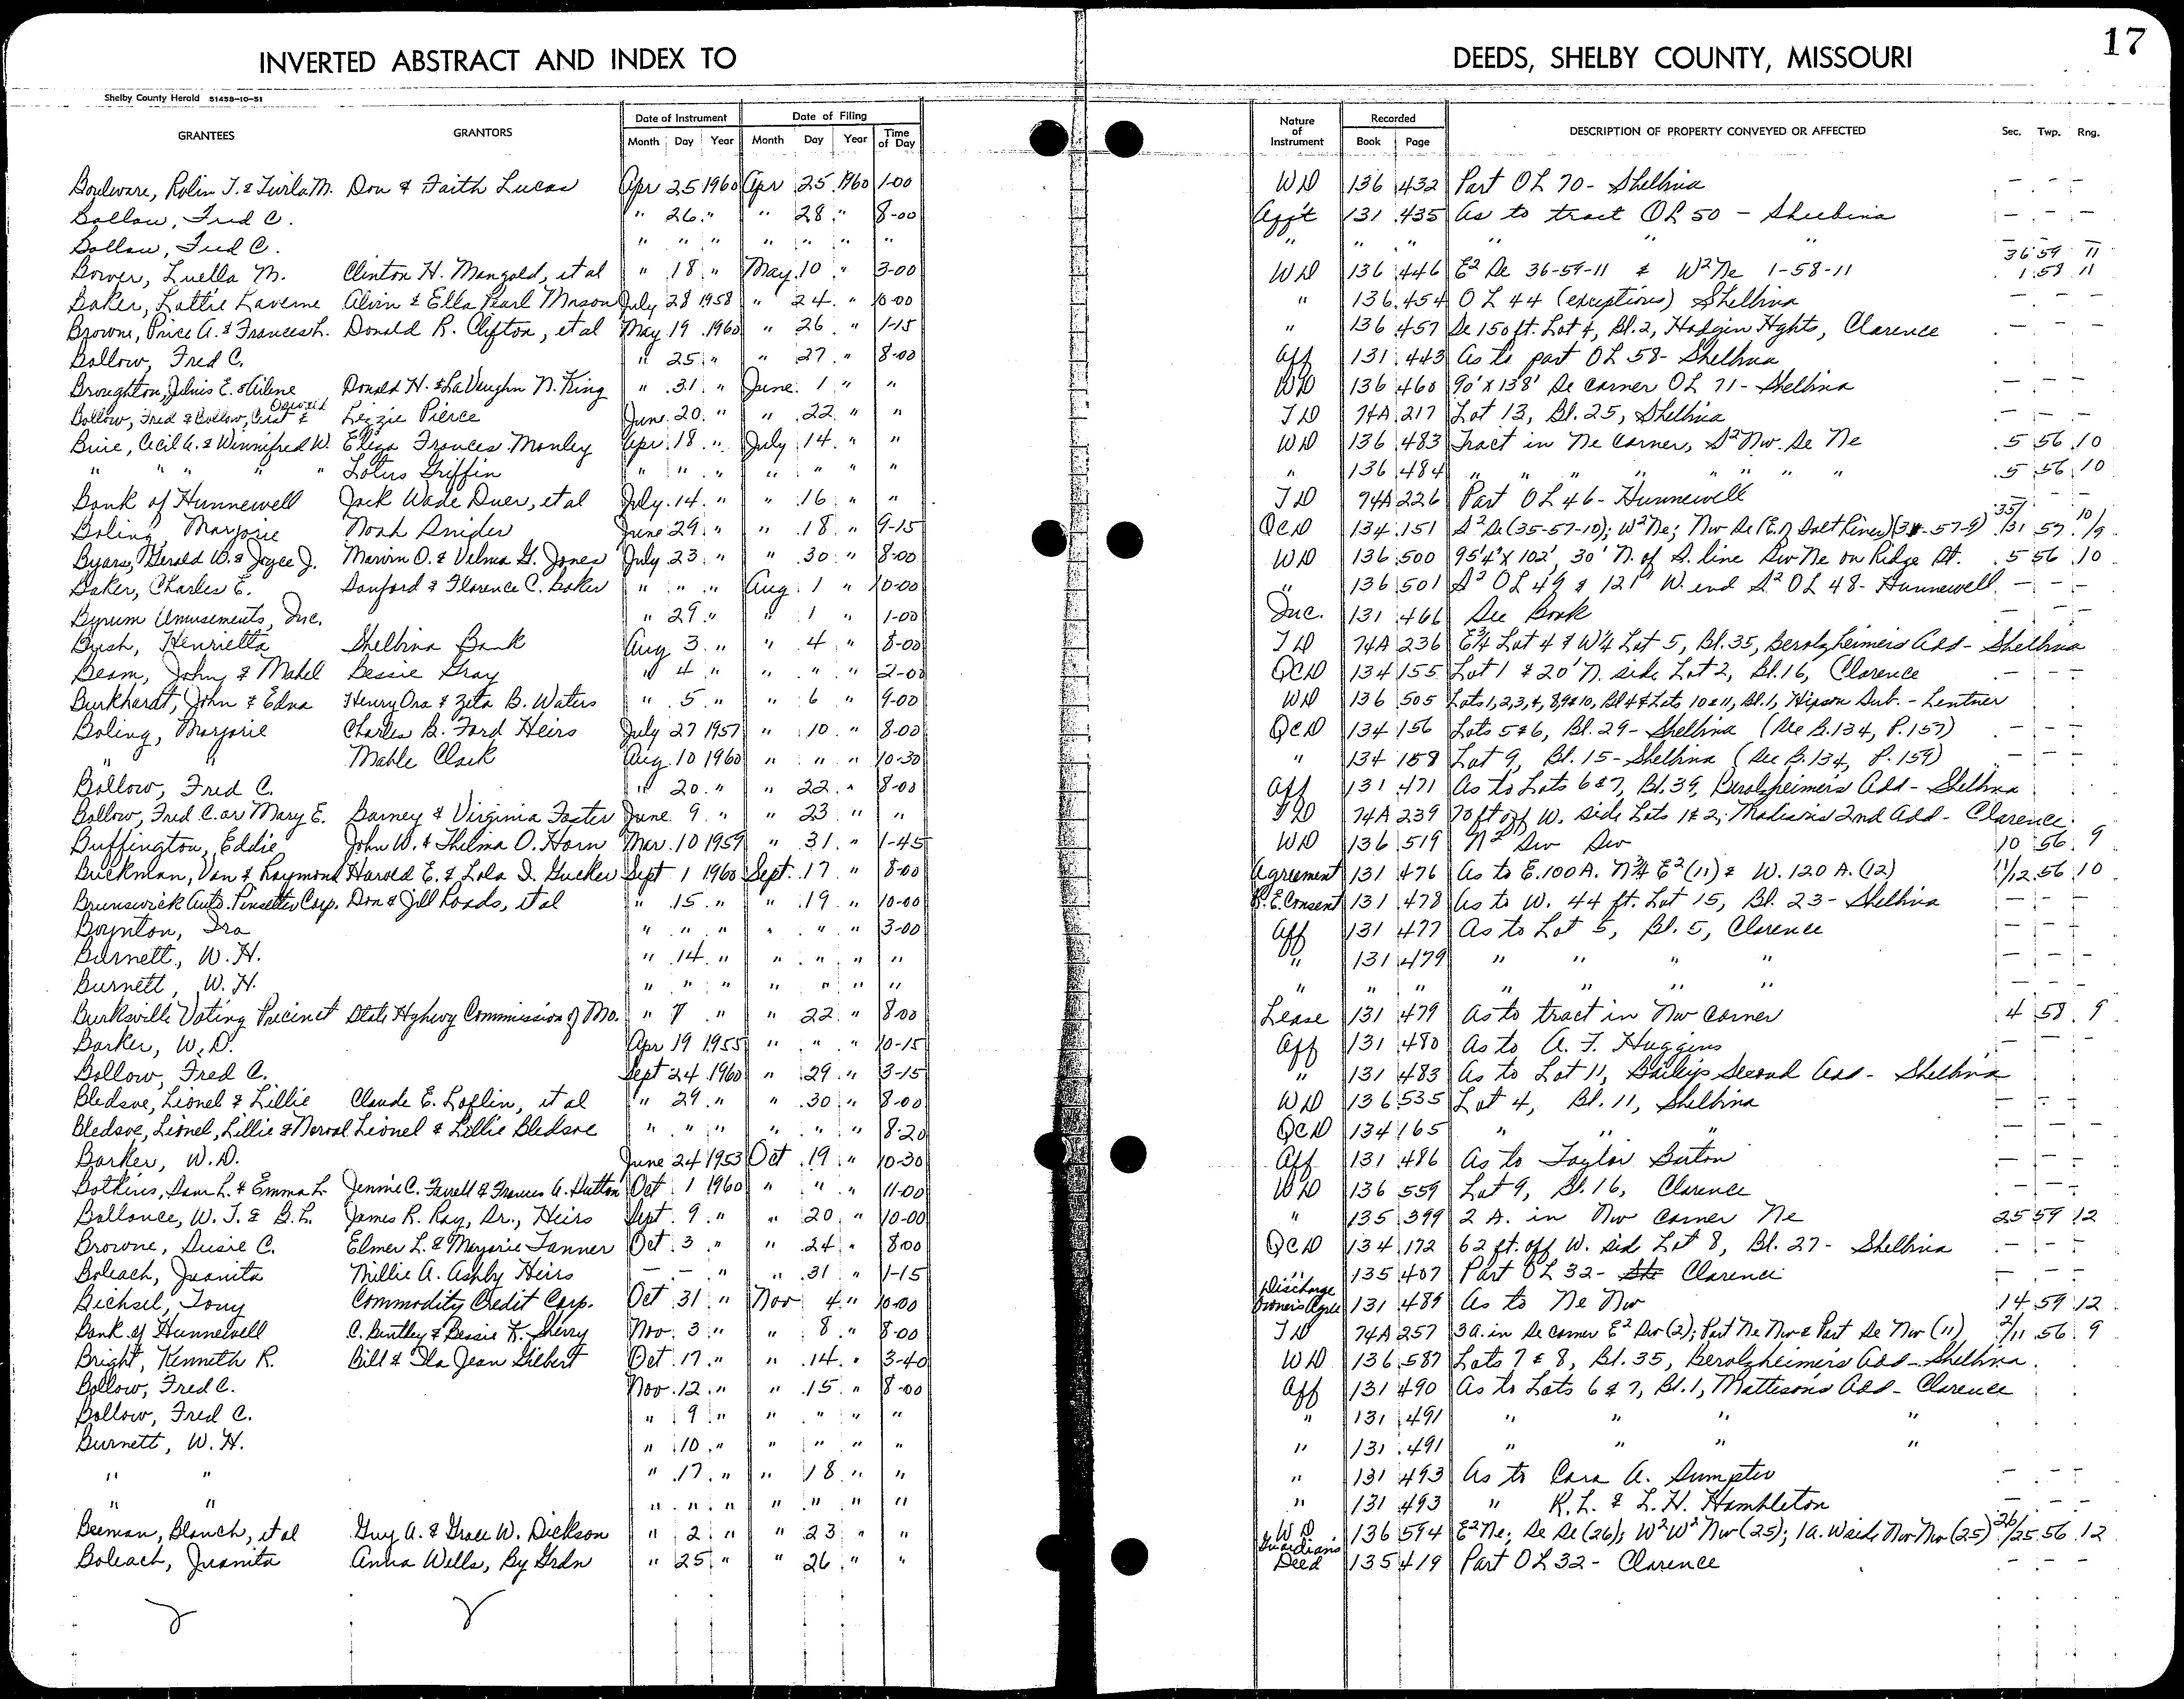 17
INVERTED ABSTRACT AND INDEX TO DEEDS, SHELBY COUNTY, MISSOURI
Shelby County Herald 51458-10-51
GRANTEES GRANTORS Date of Instrument Date of Filing Nature of Instrument Recorded DESCRIPTION OF PROPERTY CONVEYED OR AFFECTED Sec. Twp. Rng.
Month Day Year Month Day Year Time of Day Book Page
Boulware, Rolin T. & Twila M. Don & Faith Lucas Apr 25 1960 Apr 25 1960 1-00 WD 136 432 Part OL 70 - Shelbina — — —
Bollow, Fred C. " 26 " " 28 " 8-00 Aff't 131 435 As to tract OL 50 - Shelbina — — —
Bollow, Fred C. " " " " " " " " " " " " " — — —
Bower, Luella M. Clinton H. Mangold, et al " 18 " May 10 " 3-00 WD 136 446 E² Se 36-59-11 & W² Ne 1-58-11 36 59 11 1 58 11
Baker, Lottie Laverne Alvin & Ella Pearl Mason July 28 1958 " 24 " 10-00 " 136 454 OL 44 (exceptions) Shelbina — — —
Browne, Price A. & Frances L. Donald R. Clifton, et al May 19 1960 " 26 " 1-15 " 136 457 Se 150 ft. Lot 4, Bl. 2, Hodgin Hghts, Clarence — — —
Bollow, Fred C. " 25 " " 27 " 8-00 Aff 131 443 As to part OL 58 - Shelbina
Broughton, Julius E. & Arlene Donald H. & LaVaughn N. King " 31 " June 1 " " WD 136 460 90' x 138' Se corner OL 71 - Shelbina — — —
Bollow, Fred & Bollow, Lizzie Pierce June 20 " " 22 " " TD 74A 217 Lot 13, Bl. 25, Shelbina — — —
Buie, Cecil A. & Winnifred W. Eliza Frances Monley Apr 18 " July 14 " " WD 136 483 Tract in Ne corner, S² Nw Se Ne 5 56 10
" " " " Lotus Griffin " " " " " " " " 136 484 " " " " " " " " 5 56 10
Bank of Hunnewell Jack Wade Duer, et al July 14 " " 16 " " TD 74A 226 Part OL 46 - Hunnewell — — —
Boling, Marjorie Noah Snider June 29 " " 18 " 9-15 QCD 134 151 S² Se (35-57-10); W² Ne; Nw Se (E. of Salt River) (31-57-9) 35/31 57 10/9
Byars, Gerald W. & Joyce J. Marvin O. & Velma G. Jones July 23 " " 30 " 8-00 WD 136 500 95'4" x 102', 30' N. of S. line Sw Ne on Ridge St. 5 56 10
Baker, Charles E. Sanford & Florence C. Baker " " " Aug 1 " 10-00 " 136 501 S² OL 49 & 121' W. end S² OL 48 - Hunnewell — — —
Byrum Amusements, Inc. " 29 " " 1 " 1-00 Inc. 131 466 See Book — — —
Bush, Henrietta Shelbina Bank Aug 3 " " 4 " 8-00 TD 74A 236 E¾ Lot 4 & W¼ Lot 5, Bl. 35, Berolzheimers Add - Shelbina
Beam, John & Mabel Bessie Gray " 4 " " " " 2-00 QCD 134 155 Lot 1 & 20' N. side Lot 2, Bl. 16, Clarence — — —
Burkhardt, John & Edna Henry Ora & Zeta B. Waters " 5 " " 6 " 9-00 WD 136 505 Lots 1, 2, 3, 4, 8, 9 & 10, Bl 4 & Lots 10 & 11, Bl. 1, Hixson Sub. - Lentner
Boling, Marjorie Charles B. Ford Heirs July 27 1957 " 10 " 8-00 QCD 134 156 Lots 5 & 6, Bl. 29 - Shelbina (See B. 134, P. 157) — — —
" " Mable Clark Aug. 10 1960 " " " 10-30 " 134 158 Lot 9, Bl. 15 - Shelbina (See B. 134, P. 159) — — —
Bollow, Fred C. " 20 " " 22 " 8-00 Aff 131 471 As to Lots 6 & 7, Bl. 39, Berolzheimer's Add - Shelbina
Bollow, Fred C. or Mary E. Barney & Virginia Foster June 9 " " 23 " " TD 74A 239 70 ft off W. side Lots 1 & 2, Madison's 2nd Add - Clarence
Buffington, Eddie John W. & Thelma O. Horn Mar. 10 1959 " 31 " 1-45 WD 136 519 N² Sw Sw 10 56 9
Buckman, Van & Raymond Harold E. & Lola I. Gucker Sept 1 1960 Sept. 17 " 8-00 Agreement 131 476 As to E. 100 A. N¾ E² (11) & W. 120 A. (12) 11/12 56 10
Brunswick Auto. Pinsetter Corp. Don & Jill Roads, et al " 15 " " 19 " 10-00 R.E. Consent 131 478 As to W. 44 ft. Lot 15, Bl. 23 - Shelbina — — —
Boynton, Ira " " " " " " 3-00 Aff 131 477 As to Lot 5, Bl. 5, Clarence — — —
Burnett, W. H. " 14 " " " " " " 131 479 " " " " — — —
Burnett, W. H. " " " " " " " " " " " " " " — — —
Burksville Voting Precinct State Highwy Commission of Mo. " 7 " " 22 " 8-00 Lease 131 479 As to tract in Nw corner 4 58 9
Barker, W. D. Apr 19 1955 " " " 10-15 Aff 131 480 As to A. F. Huggins — — —
Bollow, Fred C. Sept 24 1960 " 29 " 3-15 " 131 483 As to Lot 11, Bailey's Second Add - Shelbina
Bledsoe, Lionel & Lillie Claude E. Loflin, et al " 29 " " 30 " 8-00 WD 136 535 Lot 4, Bl. 11, Shelbina — — —
Bledsoe, Lionel, Lillie & Norval Lionel & Lillie Bledsoe " " " " " " 8-20 QCD 134 165 " " " — — —
Barker, W. D. June 24 1953 Oct 19 " 10-30 Aff 131 486 As to Taylor Barton — — —
Botkins, Sam L. & Emma L. Jennie C. Farrell & Frances A. Hutton Oct 1 1960 " " " 11-00 WD 136 559 Lot 9, Bl. 16, Clarence — — —
Ballance, W. T. & B. L. James R. Ray, Sr., Heirs Sept. 9 " " 20 " 10-00 " 135 399 2 A. in Nw corner Ne 25 59 12
Browne, Susie C. Elmer L. & Marjorie Tanner Oct 3 " " 24 " 8-00 QCD 134 172 62 ft. off W. sid Lot 8, Bl. 27 - Shelbina — — —
Boleach, Juanita Millie A. Ashby Heirs — — " " 31 " 1-15 " 135 407 Part OL 32 - Clarence — — —
Bichsel, Tony Commodity Credit Corp. Oct 31 " Nov 4 " 10-00 Discharge Owner's Agree 131 489 As to Ne Nw 14 59 12
Bank of Hunnewell C. Bentley & Bessie K. Sherry Nov. 3 " " 8 " 8-00 TD 74A 257 3 a. in Se corner E² Sw (2); Part Ne Nw & Part Se Nw (11) 2/11 56 9
Bright, Kenneth R. Bill & Ila Jean Gilbert Oct. 17 " " 14 " 3-40 WD 136 587 Lots 7 & 8, Bl. 35, Berolzheimer's Add - Shelbina
Bollow, Fred C. Nov. 12 " " 15 " 8-00 Aff 131 490 As to Lots 6 & 7, Bl. 1, Mattison's Add - Clarence
Bollow, Fred C. " 9 " " " " " " 131 491 " " " "
Burnett, W. H. " 10 " " " " " " 131 491 " " " "
" " " 17 " " 18 " " " 131 493 As to Cara A. Sumpter — — —
" " " " " " " " " " 131 493 " R. L. & L. H. Hambleton — — —
Beeman, Blanch, et al Guy A. & Grace W. Dickson " 2 " " 23 " " WD 136 594 E² Ne; Se Se (26); W² W² Nw (25); 1 a. W side Nw Nw (25) 26/25 56 12
Boleach, Juanita Anna Wells, By Grdn " 25 " " 26 " " Guardian's Deed 135 419 Part OL 32 - Clarence — — —